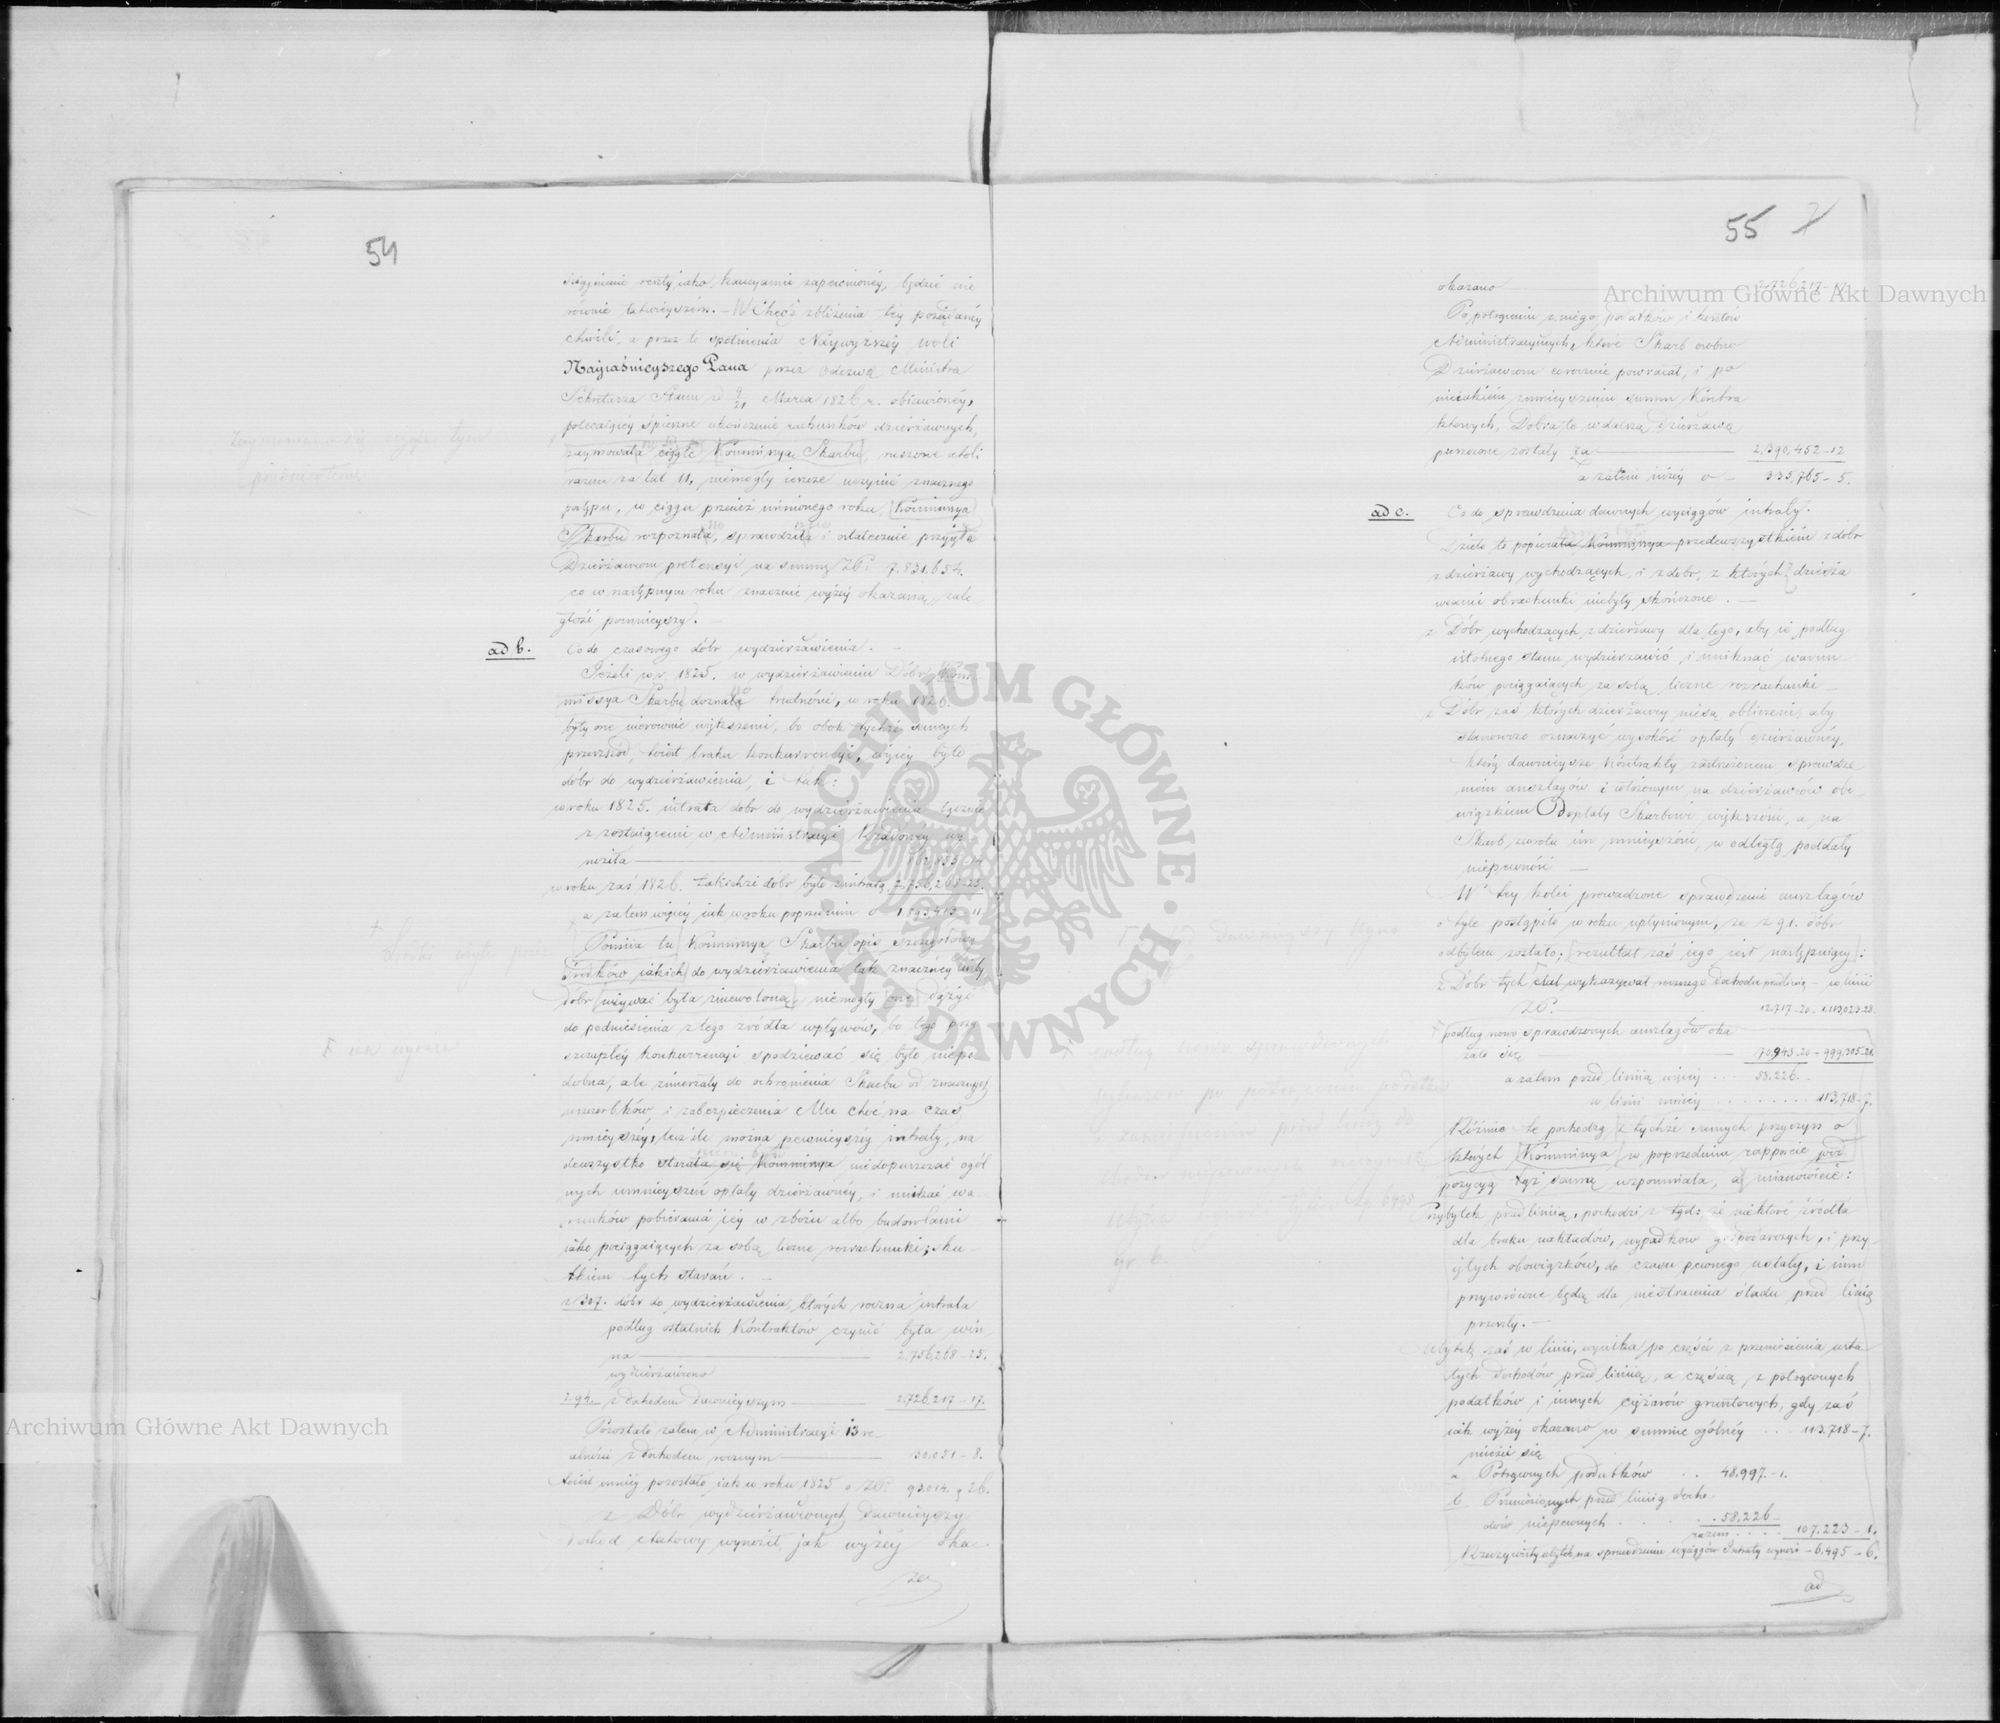 54
ściągnienie reszty iako kaucyami zapewnionéy, będzie nie
równie łatwieyszém. – W chęci zbliżenia téy pożądanéy
chwili, a przez to spełnienia Naywyższéy woli
Nayiaśnieyszego Pana przez Odezwę Ministra
Sekretarza Stanu z d 9/21 Marca 1826 r. obiawionéy,
polecaiącéy śpieszne ukończenie rachunków dzierżawnych,
zaymowała ciągle Kommissyą Skarbu,
razem za lat 11, niemogły ieszcze uczynić znacznego
w ciągu przecież minionego roku, Kommissya
Skarbu rozpoznała, sprawdziła i ostatecznie przyięła
Dzierżawcom pretensyi na summę ZP. 7.831.654.
co w następnym roku znacznie wyżéy okazaną zale-
głość pomnieyszy. –
ad b. Co do czasowego dóbr wydzierżawienia. –
Jeżeli w r. 1825. w wydzierżawieniu Dóbr Kom-
missya Skarbu doznała trudności, w roku 1826.
były one nierównie większemi, bo obok tychże samych
przeszkód, iest braku konkurrencyi, więcéy było
dóbr do wydzierżawienia, i tak:
w roku 1825. intrata dóbr do wydzierżawienia łącznie
z zostaiącemi w Administracyi Kraiowéy wy-
nosiła
w roku zaś 1826. takichże dóbr było z intratą 2,756,268–25.
a zatem więcéy iak w roku poprzednim o 1,893,413–11
Pomiia tu Kommissya Skarbu opis szczegółowy
środków iakich do wydzierżawienia tak znacznéy ilości
dóbr używać była zniewoloną, niemogły one dążyć
do podniesienia z tego źródła wpływów, bo tego przy
szczupłéy konkurrencyi spodziewać się było niepo-
dobna, ale zmierzały do ochronienia Skarbu od znacznych
uszczerbków, i zabezpieczenia Mu choć na czas
mnieyszéy, lecz ile można pewnieyszéy intraty, na
dewszystko starała się Kommissya niedopuszczać ogól-
nych umnieyszeń opłaty dzierżawnéy, i unikać wa-
runków pobierania iéy w zbożu albo budowlami
iako pociągaiących za sobą liczne rozrachunki; sku-
tkiem tych starań. –
z 307. dóbr do wydzierżawienia, których roczna intrata
podług ostatnich Kontraktów czynić była win-
na 2,756,268–25.
wydzierżawiono
z 94. z dochodem dawnieyszym 2,726,217–17.
Pozostało zatem w Administracyi 13 re-
alności z dochodem rocznym 30.051–8.
z Dóbr wydzierżawionych dawnieyszy
dochod etatowy wynosił, jak wyżéy oka-
zan
55
okazano 2,726,217–17
Po potrąceniu z niego podatków i kosztów
Administracyinych, które Skarb osobno
Dzierżawcom corocznie powracał, i po
nieiakiém zmnieyszeniu summ Kontra-
ktowych, Dobra te w dalszą dzierżawę
puszczone zostały za 2,390,452–12
a zatem niżéy o – 335,765–5.
ad c. Co do sprawdzenia dawnych wyciągów intraty.
Dzieło to popierała Kommissya przedewszystkiém z dóbr
z dzierżawy wychodzących, i z dobr, z których z dzierża-
wcami obrachunki niebyły skończone. –
z Dóbr wychodzących z dzierżawy dla tego, aby ie podług
istotnego stanu wydzierżawić i uniknąć warun-
ków pociągaiących za sobą liczne rozrachunki –
z Dóbr zaś których dzierżawcy niesą obliczeni, aby
stanowczo oznaczyć wysokość opłaty dzierżawnéy,
którą dawnieysze Kontrakty zastrzeżeniem sprawdze-
niem anszlagów i włożonym na dzierżawców obo-
wiązkiem Odopłaty Skarbowi większości, a na
Skarb zwrotu im mnieyszości, w odległą poddały
niepewność –
W téy kolei prowadzone sprawdzenie anszlagów
o tyle postąpiło w roku upłynionym, że z 91. dóbr
odbytem zostało; rezultat zaś iego iest następuiący:
z Dóbr tych etat wykazywał rocznego dochodu przed linią – w linii
ZP. 12,717–20 – 1.113,023–28.
podług nowo sprawdzonych anszlagów oka-
zało się 70,943–20 – 999,305–21.
a zatem przed liniią więcéy .... 58.226. –
w linii mniéy ....... 113,718–7.
Różnice te pochodzą z tychże samych przyczyn o
których Kommissya w poprzednim rapporcie pod
pozycyą tąż samą wspomniała, a mianowicie:
Przybytek przed liniią, pochodzi z tąd: że niektóre źródła
dla braku nakładów, wypadków gospodarczych, i przy-
iętych obowiązków, do czasu pewnego ustały, i inne
przywrócone będą dla niestracenia śladu przed linią
przeszły. –
Ubytek zaś w linii, wynikł po części z przeniesienia usta-
łych dochodów przed liniią, a częścią z potrąconych
podatków i innych ciężarów gruntowych, gdy zaś
iak wyżéy okazano w summie ogólnéy ... 113.718–7.
mieści się
a Potrąconych podatków .. 48,997.–1.
b Przeniesionych przed liniią docho-
dów niepewnych .... 58,226–
razem .... 107.223–1.
Rzeczywisty ubytek na sprawdzeniu wyciągów Intraty wynosi – 6,495–6.
ad
Archiwum Główne Akt Dawnych
Archiwum Główne Akt Dawnych
ARCHIWUM GŁÓWNE AKT DAWNYCH